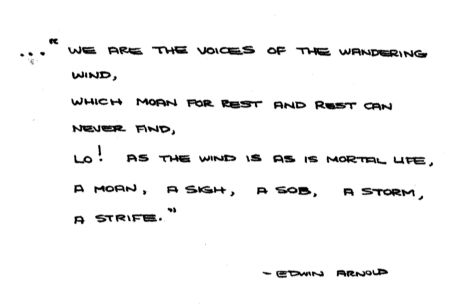 ..." WE ARE THE VOICES OF THE WANDERING
WIND,
WHICH MOAN FOR REST AND REST CAN
NEVER FIND,
LO! AS THE WIND IS AS IS MORTAL LIFE,
A MOAN, A SIGH, A SOB, A STORM,
A STRIFE."
- EDWIN ARNOLD